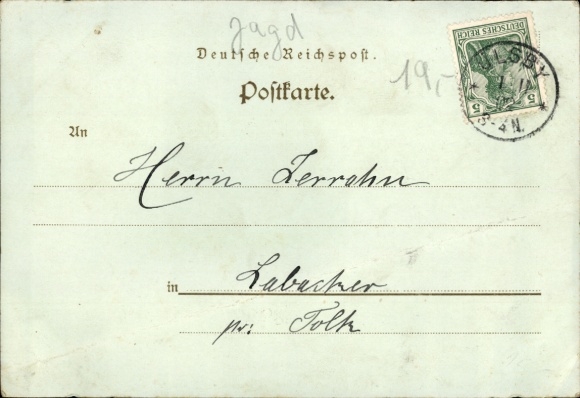 Jagd
Deutsche Reichspost.
19,-
Postkarte.
DEUTSCHES REICH
5 5
ULSBY
3-4N.
An
Herrn Zerrahn
in
pr: Tolk